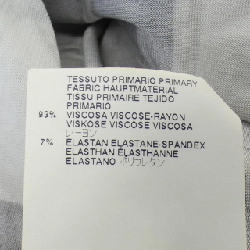 TESSUTO PRIMARIO PRIMARY
FABRIC HAUPTMATERIAL
TISSU PRIMAIRE TEJIDO
PRIMARIO
93% VISCOSA VISCOSE-RAYON
VISKOSE VISCOSE VISCOSA
レーヨン
7% ELASTAN ELASTANE SPANDEX
ELASTHAN ELASTHANNE
ELASTANO ポリウレタン